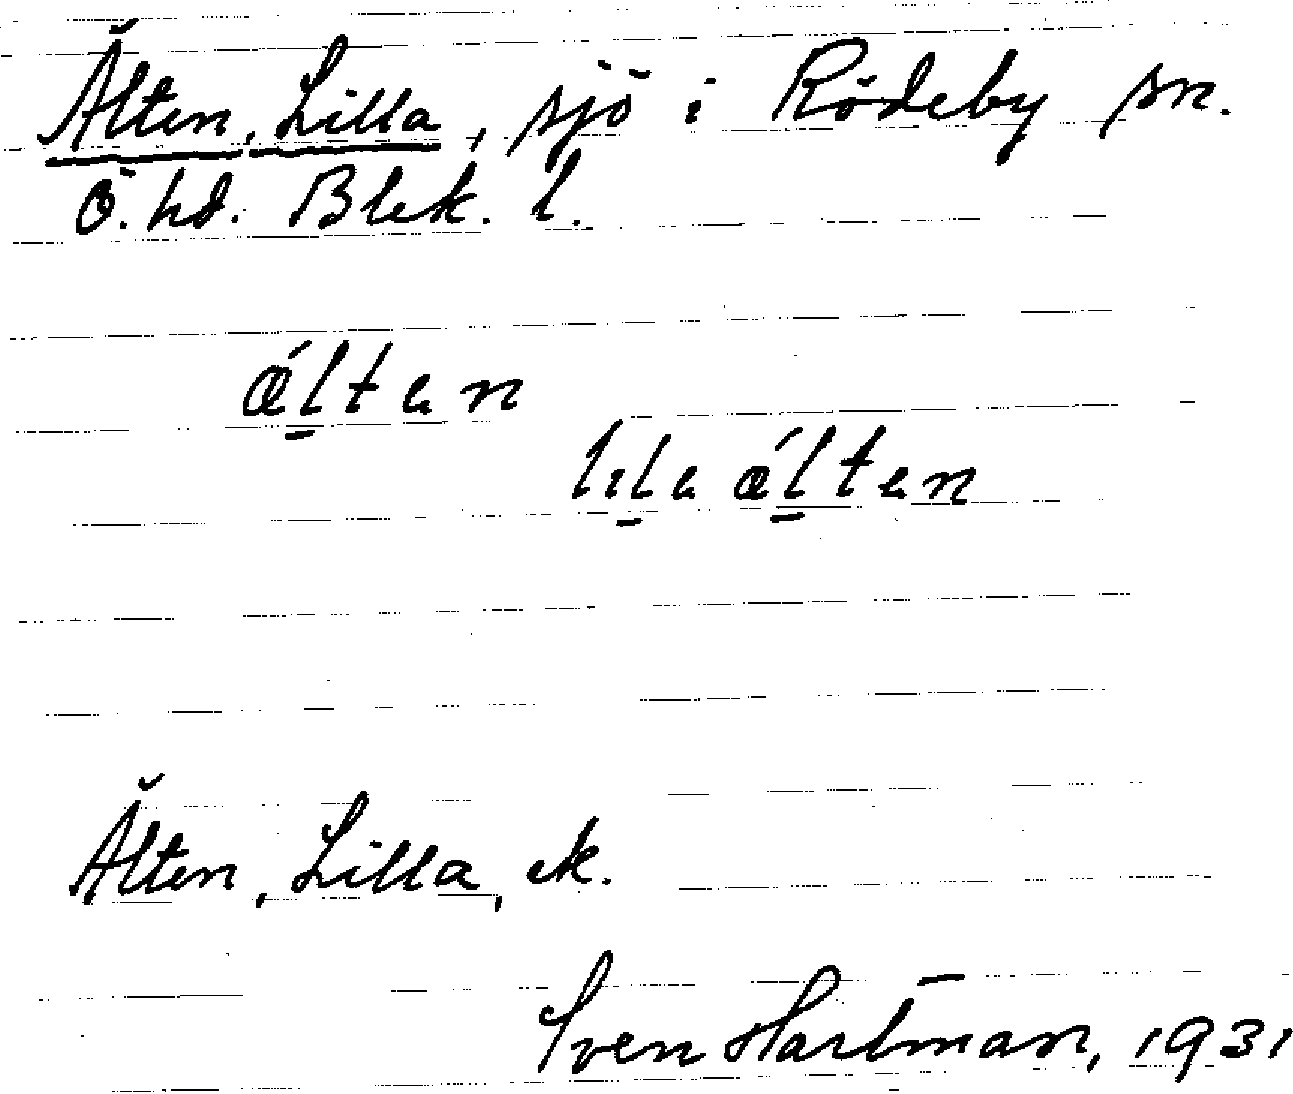 Älten, Lilla, sjö i Rödeby sn.
Ö. hd. Blek. l.
ǽltən
lıla ǽltən
Älten, Lilla, ek.
Sven Hartman, 1931